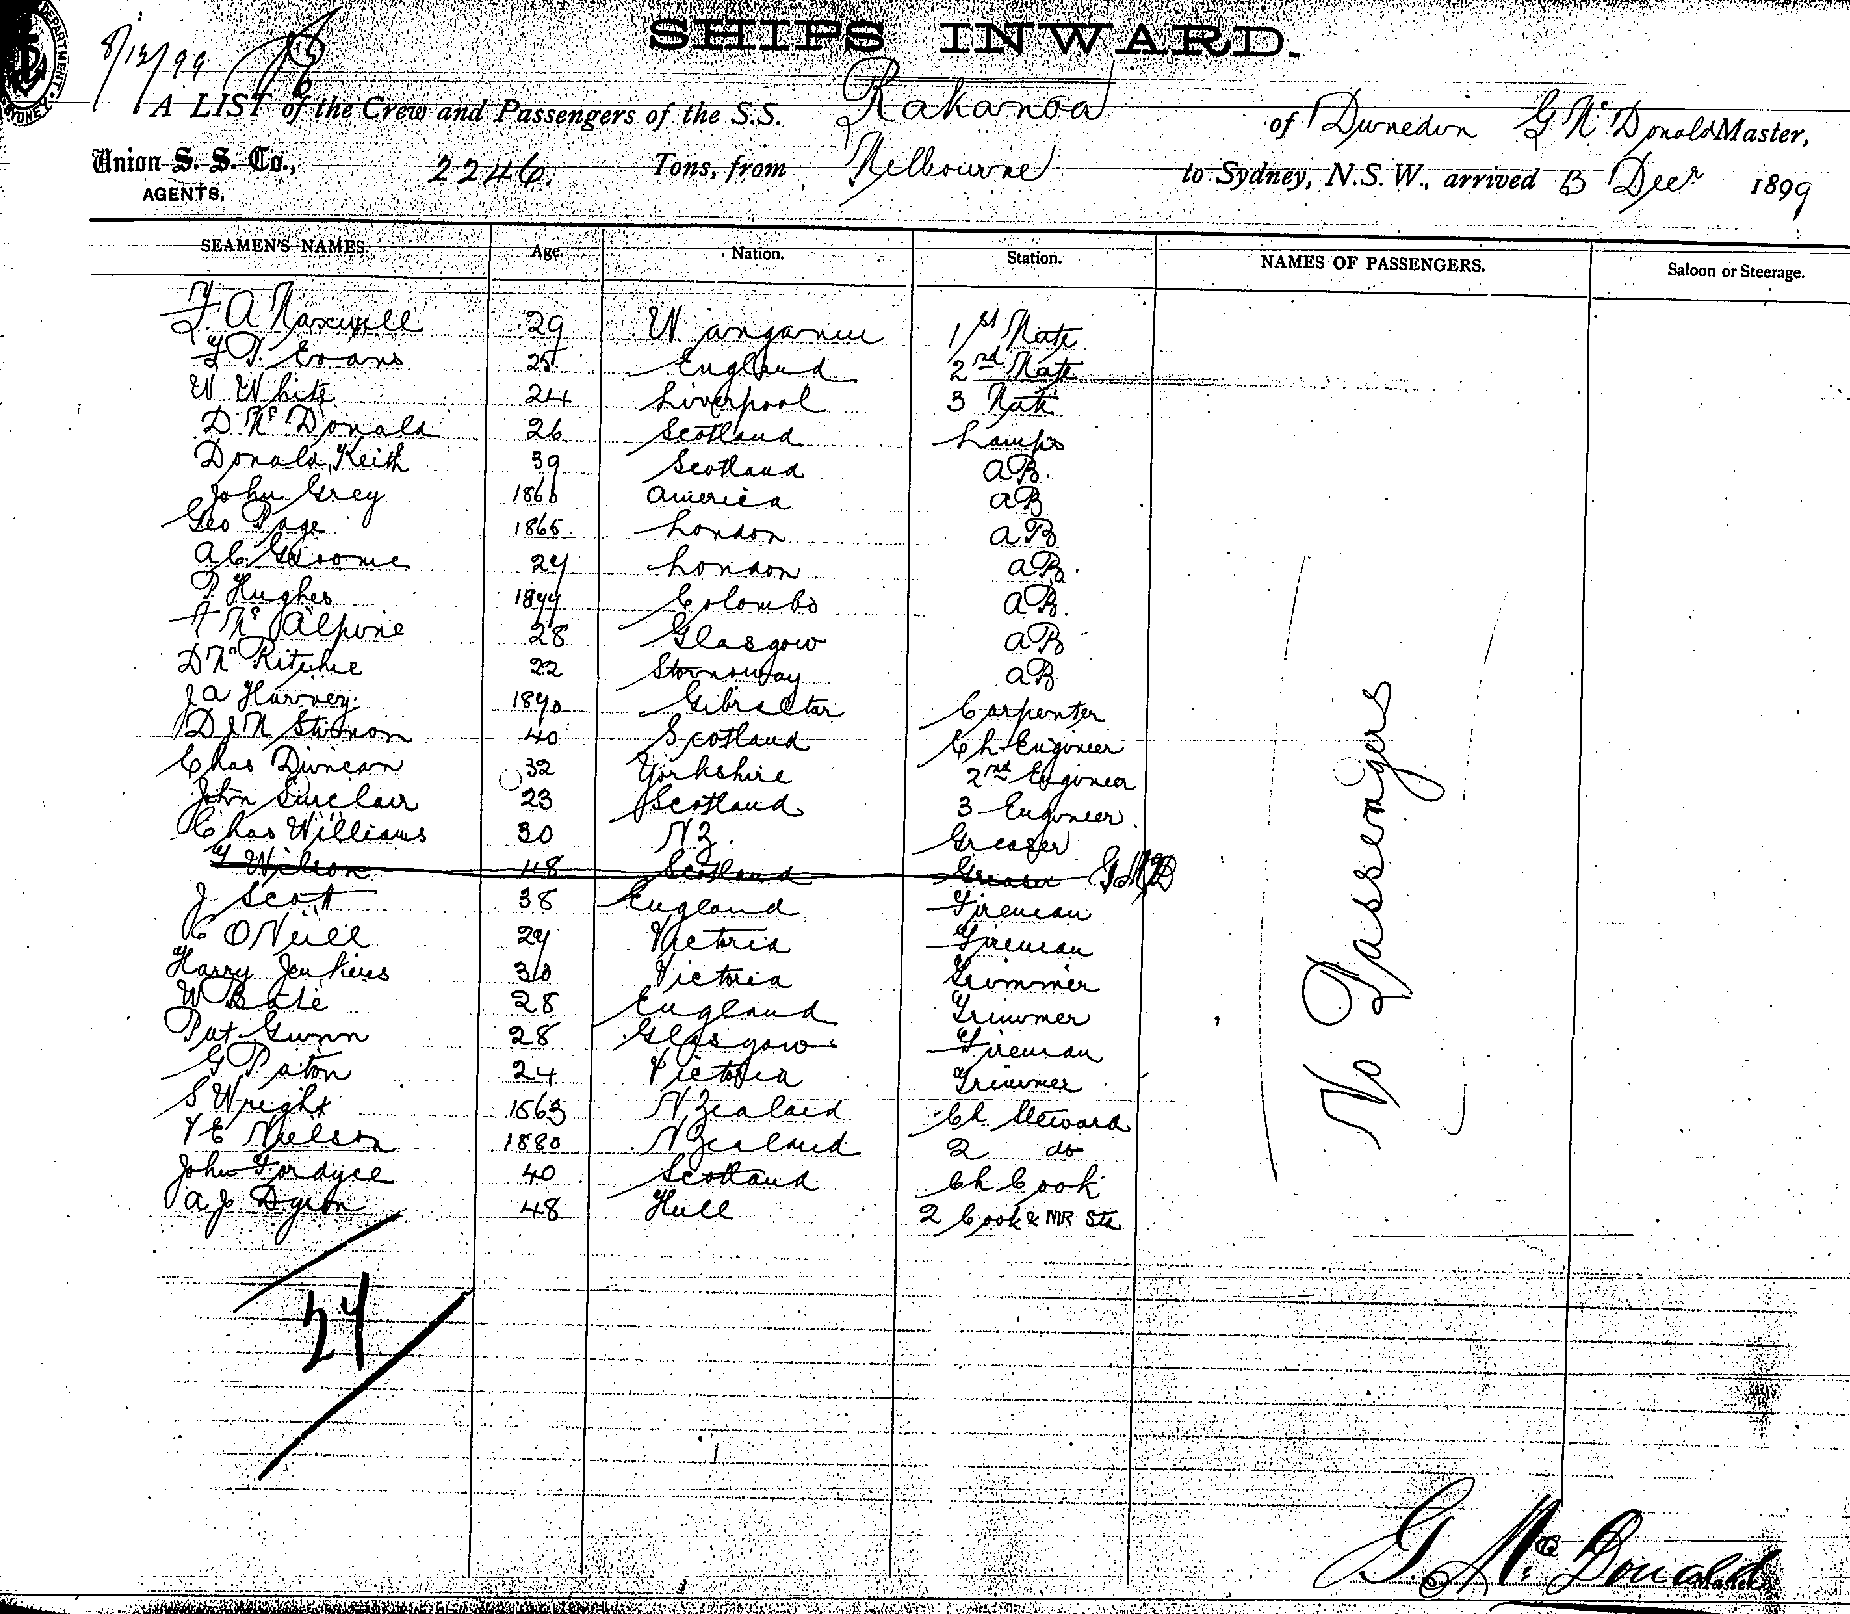 8/12/99
SHIPS INWARD.
A LIST of the Crew and Passengers of the S.S. Rakanoa of Dunedin G Mc Donald Master,
Union S. S. Co., AGENTS, 2246 Tons, from Melbourne to Sydney, N.S.W., arrived 3 Decr 1899
SEAMEN'S NAMES. Age. Nation. Station. NAMES OF PASSENGERS. Saloon or Steerage.
F. A Maxwell 29 Wanganui 1st Mate
Evans 25 England 2nd Mate
W White 24 Liverpool 3 Mate
D Mc Donald 26 Scotland Lamps
Donald Keith 39 Scotland AB.
John Grey 1860 America AB
Geo Page 1865 London AB
A C Groome 27 London AB.
P Hughes 1877 Colombo AB.
Mc Alpine 28 Glasgow AB
Ritchie 22 Stornoway AB
J A Harvey 1870 Gibraltar Carpenter
40 Scotland Ch Engineer
Chas Duncan 32 Yorkshire 2nd Engineer
John Sinclair 23 Scotland 3 Engineer
Chas Williams 30 NZ. Greaser
Wilson 48 Scotland Greaser
J Scott 38 England Fireman
C ONeill 27 Victoria Fireman
Harry Jenkins 30 Victoria Trimmer
W Bate 28 England Trimmer
Pat Gunn 28 Glasgow Fireman
G Paton 24 Victoria Trimmer
S Wright 1863 N Zealand Ch Steward
Nielson 1880 N Zealand 2 do
John Fordyce 40 Scotland Ch Cook
A J 48 Hull 2 Cook & MR Std
No Passengers
27
G Mc Donald